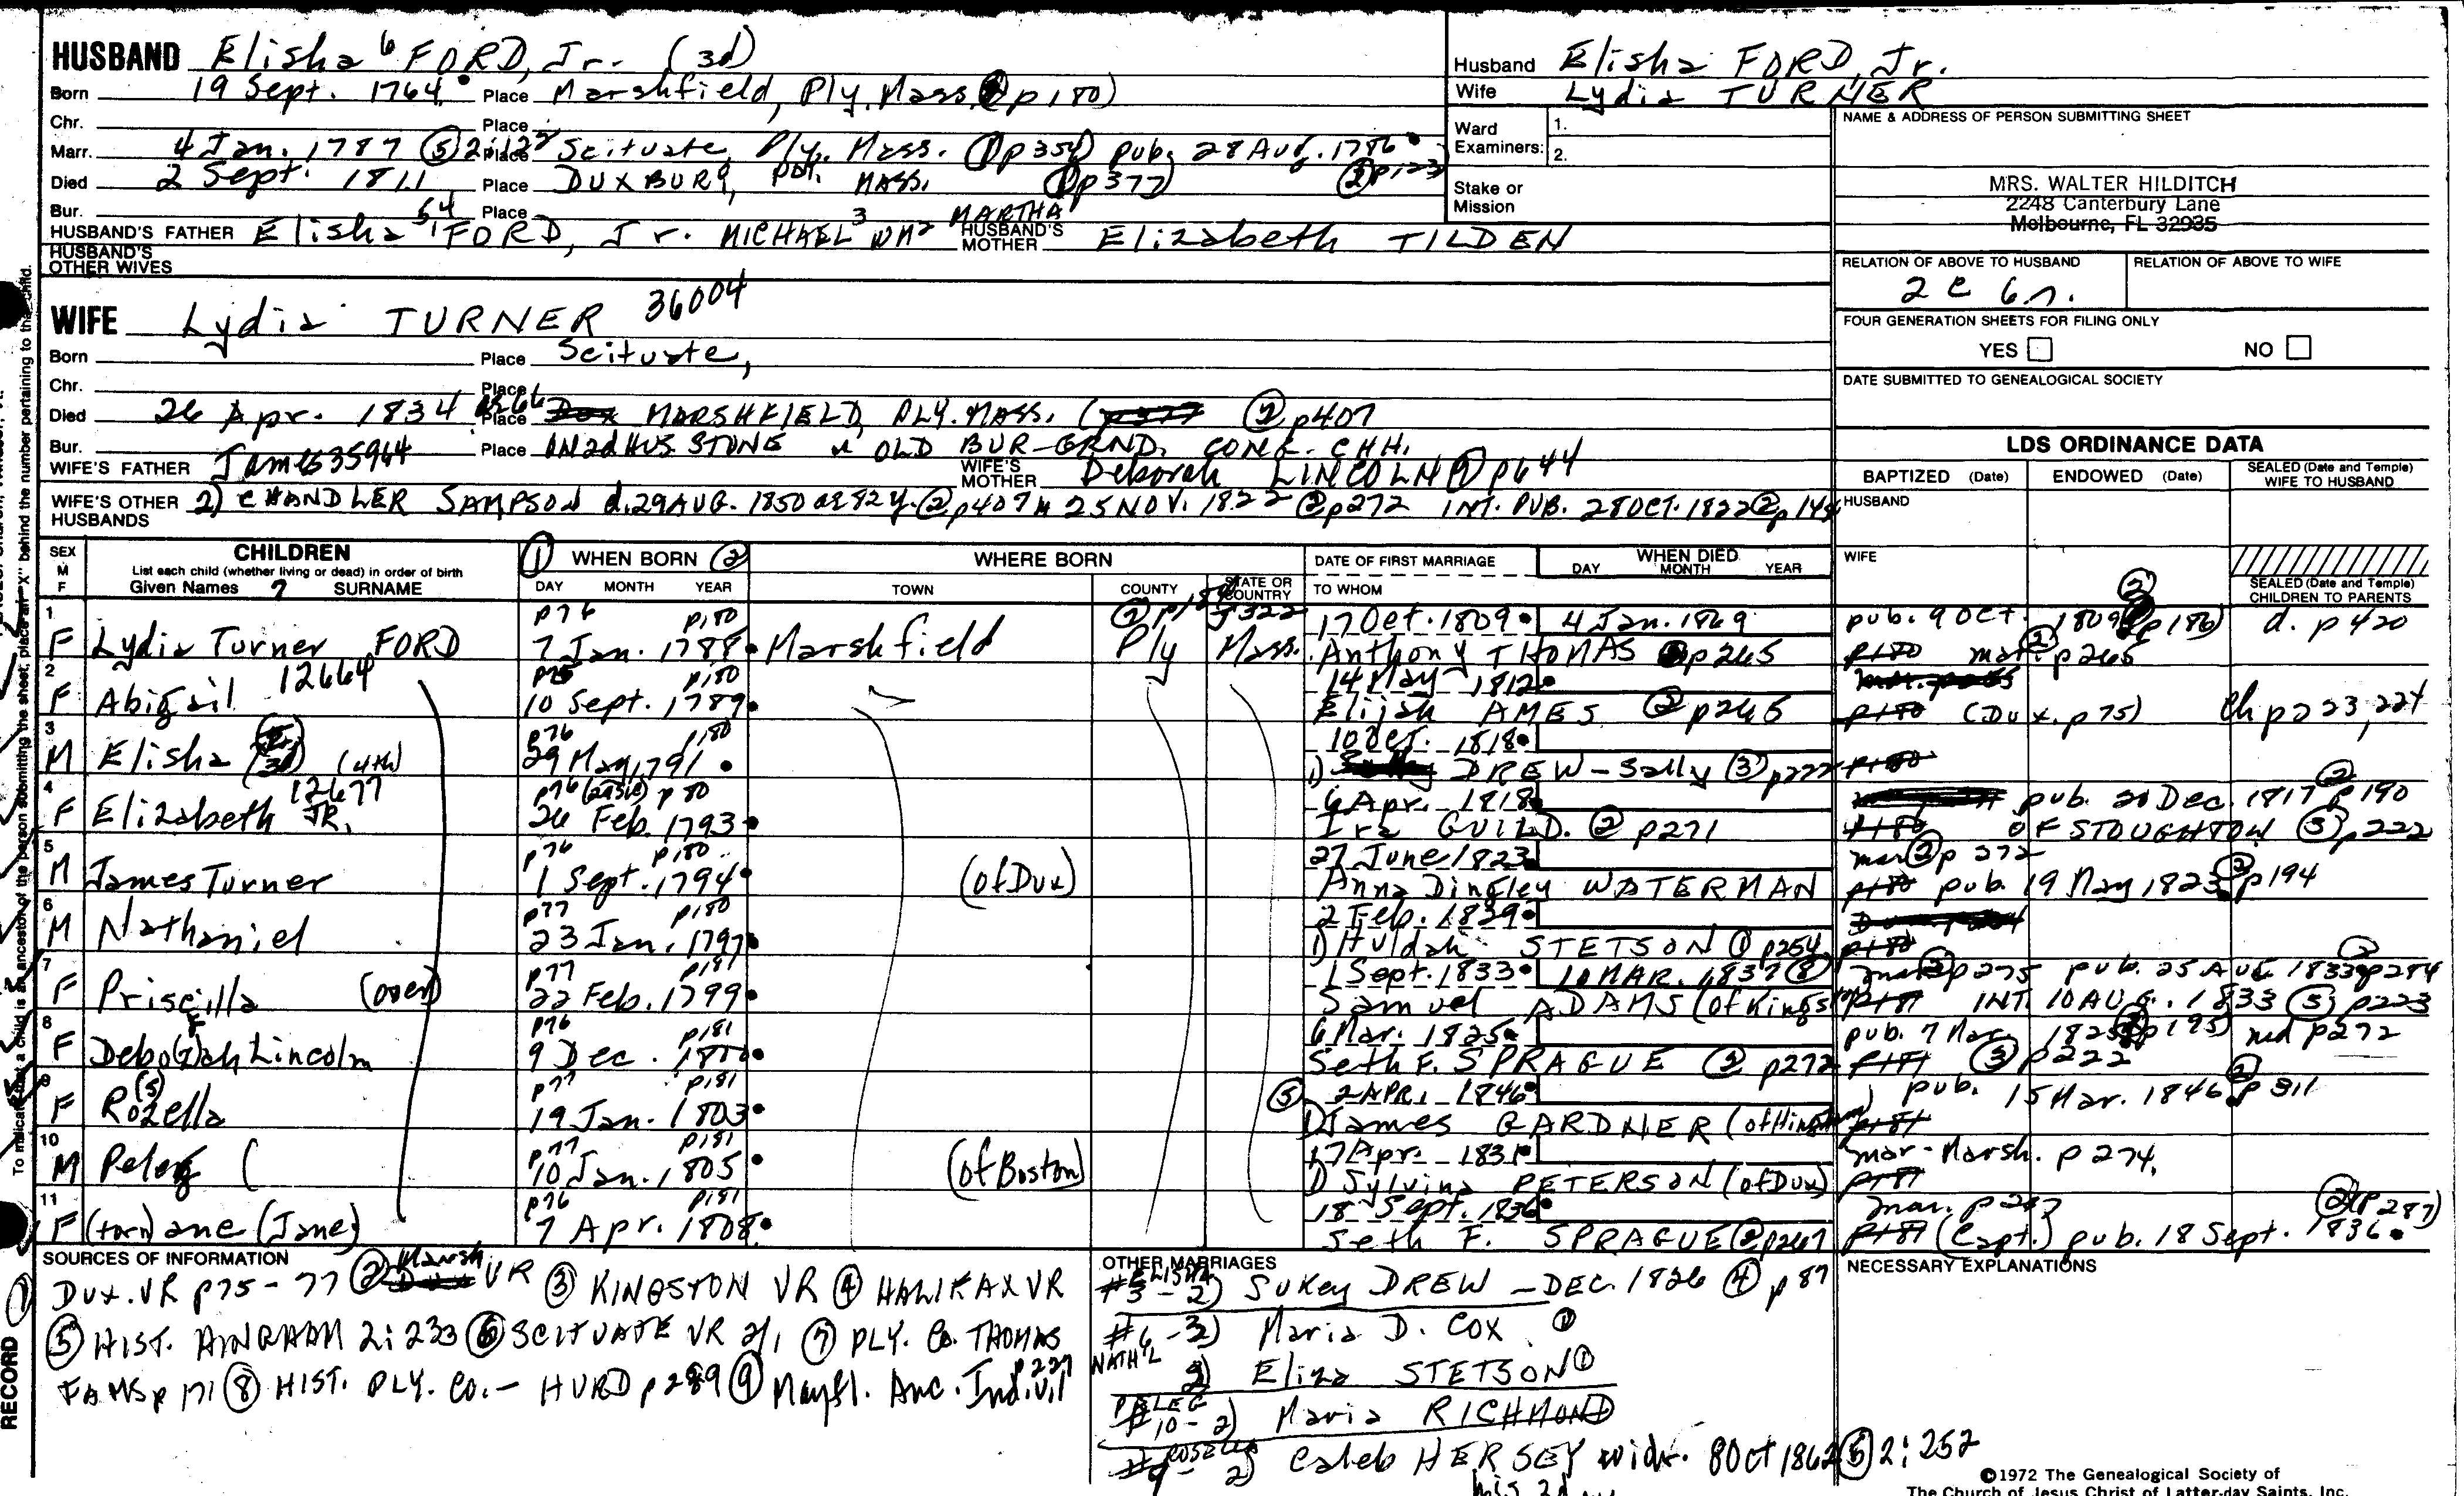 HUSBAND Elisha 6 FORD, Jr. (3d)
Born 19 Sept. 1764 Place Marshfield, Ply. Mass. p180)
Chr. Place
Marr. 4 Jan. 1787 (5) 2:122 Place Scituate, Ply. Mass. (1) p354) pub. 28 Aug. 1786
Died 2 Sept. 1811 Place DUXBURY, MASS. (1) p377) (2) p123
Bur. Place
HUSBAND'S FATHER Elisha 5 4 FORD, Jr. MICHAEL 3 WM 2 HUSBAND'S MOTHER MARTHA Elizabeth TILDEN
HUSBAND'S OTHER WIVES
Husband Elisha FORD, Jr.
Wife Lydia TURNER
Ward Examiners: 1.
2.
Stake or Mission
NAME & ADDRESS OF PERSON SUBMITTING SHEET
MRS. WALTER HILDITCH
2248 Canterbury Lane
Melbourne, FL 32935
RELATION OF ABOVE TO HUSBAND RELATION OF ABOVE TO WIFE
2 c 6 r.
FOUR GENERATION SHEETS FOR FILING ONLY
YES NO
DATE SUBMITTED TO GENEALOGICAL SOCIETY
WIFE Lydia TURNER 36004
Born Place Scituate,
Chr. Place
Died 26 Apr. 1834 Place Dux MARSHFIELD, PLY. MASS. (p377 (2) p407
Bur. Place ON 2d HUS STONE OLD BUR-GRND, CONG. CHH.
WIFE'S FATHER James 35964 WIFE'S MOTHER Deborah LINCOLN (9) p644
WIFE'S OTHER HUSBANDS 2) CHANDLER SAMPSON d. 29 AUG. 1850 ae 82 y. (2) p407 m 25 NOV. 1822 (2) p272 INT. PUB. 28 OCT. 1822 (2) p
LDS ORDINANCE DATA
BAPTIZED (Date) ENDOWED (Date) SEALED (Date and Temple) WIFE TO HUSBAND
HUSBAND
WIFE
SEALED (Date and Temple) CHILDREN TO PARENTS
SEX M F CHILDREN (1) WHEN BORN (2) WHERE BORN DATE OF FIRST MARRIAGE WHEN DIED
List each child (whether living or dead) in order of birth
Given Names ? SURNAME DAY MONTH YEAR TOWN COUNTY STATE OR COUNTRY TO WHOM DAY MONTH YEAR
1 p76 p180 17 Oct. 1809 4 Jan. 1869 pub. 9 Oct. 1809 (p186) d. p420
F Lydia Turner FORD 7 Jan. 1788 Marshfield Ply Mass. Anthony THOMAS p265 p180 mar. (2) p265
2 12664 p75 p180 14 May 1812
F Abigail 10 Sept. 1789 Elijah AMES (2) p265 p180 (Dux. p75) ch p223, 224
3 p76 p180 10 Oct. 1818
M Elisha (3d) (4th) 29 May 1791 1) DREW - Sally (3) p222 p180
4 12677 p76 p80 6 Apr. 1818 pub. 20 Dec. 1817 (2) p190
F Elizabeth JR. 26 Feb. 1793 Ira GUILD. (2) p271 p180 OF STOUGHTON (3) p222
5 p76 p180 27 June 1823 mar (2) p 272
M James Turner 1 Sept. 1794 (of Dux) Anna Dingley WATERMAN p180 pub. 19 May 1823 (2) p194
6 p77 p180 2 Feb. 1829
M Nathaniel 23 Jan. 1797 1) Huldah STETSON (1) p254 p180
7 p77 p181 1 Sept. 1833 10 MAR. 1837 (8) mar (2) p275 pub. 25 AUG. 1833 (2) p284
F Priscilla (over) 22 Feb. 1799 Samuel ADAMS (of Kingston) p181 INT. 10 AUG. 1833 (3) p223
8 p76 p181 6 Mar. 1825 pub. 7 Mar. 1825 (p195) md p272
F Debo(r)ah Lincolm 9 Dec. 1800 Seth F. SPRAGUE (2) p272 p181 (3) p222
9 p77 p181 (5) 2 APR. 1846 pub. 15 Mar. 1846 (2) p 311
F Rozella (s) 19 Jan. 1803 1) James GARDNER (of Hingham) p181
10 p77 p181 17 Apr. 1831 mar - Marsh. p 274.
M Peleg ( 10 Jan. 1805 (of Boston) 1) Sylvina PETERSON (of Dux) p181
11 p76 p181 18 Sept. 1836 mar. (2) (p 287)
F (torn) ane (Jane) 7 Apr. 1808 Seth F. SPRAGUE (2) p267 p181 (Capt.) pub. 18 Sept. 1836
SOURCES OF INFORMATION
(1) Dux. VR p75-77 (2) Marsh VR (3) KINGSTON VR (4) HALIFAX VR
(5) HIST. HINGHAM 2:233 (6) SCITUATE VR (7) PLY. Co. THOMAS
FAMS p 171 (8) HIST. PLY. CO. - HURD p289 (9) Mayfl. Anc. Ind. v.1 p 227
OTHER MARRIAGES
#3 ELISHA - 2) SUKEY DREW - DEC. 1826 (4) p 87
#6 - 3) Maria D. COX (1)
NATH'L 2) Eliza STETSON (1)
PELEG #10 - 2) Maria RICHMOND
ROSELLA #9 - 2) Caleb HERSEY widr. 8 Oct 1862 (5) 2:252
his 2d
NECESSARY EXPLANATIONS
©1972 The Genealogical Society of
The Church of Jesus Christ of Latter-day Saints, Inc.
RECORD
To indicate that a child is an ancestor of the person submitting the sheet, place an "X" behind the number pertaining to the child.